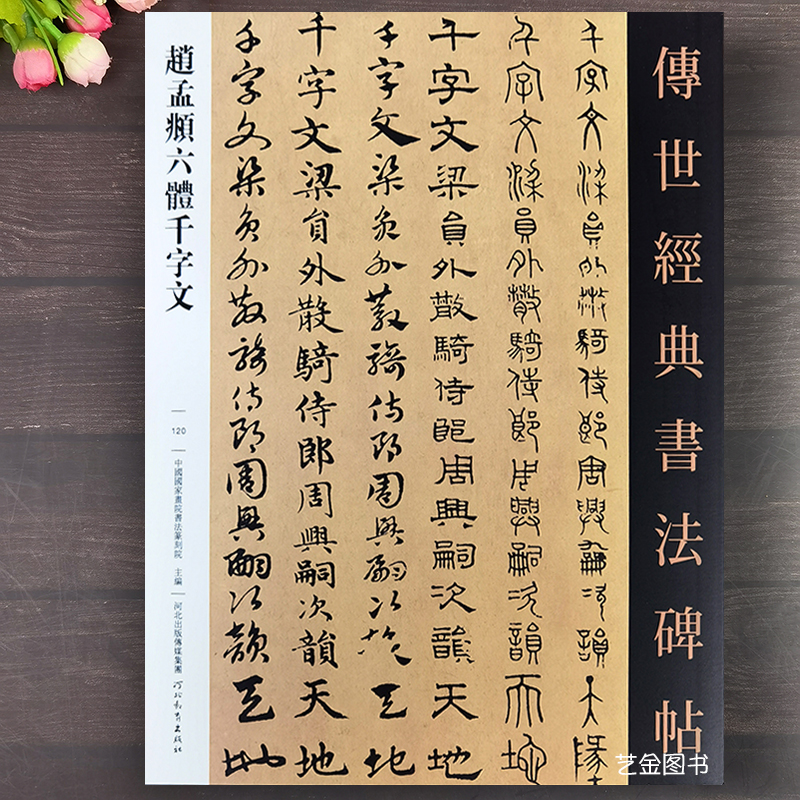 傳世經典書法碑帖
千字文梁員外散騎侍郎周興嗣次韻天地
千字文梁員外散騎侍郎周興嗣次韻天地
千字文梁員外散騎侍郎周興嗣次韻天地
千字文梁員外散騎侍郎周興嗣次韻天地
千字文梁員外散騎侍郎周興嗣次韻天地
千字文梁員外散騎侍郎周興嗣次韻天地
趙孟頫六體千字文
120
中國國家畫院書法篆刻院 主編
河北出版傳媒集團
河北教育出版社
艺金图书